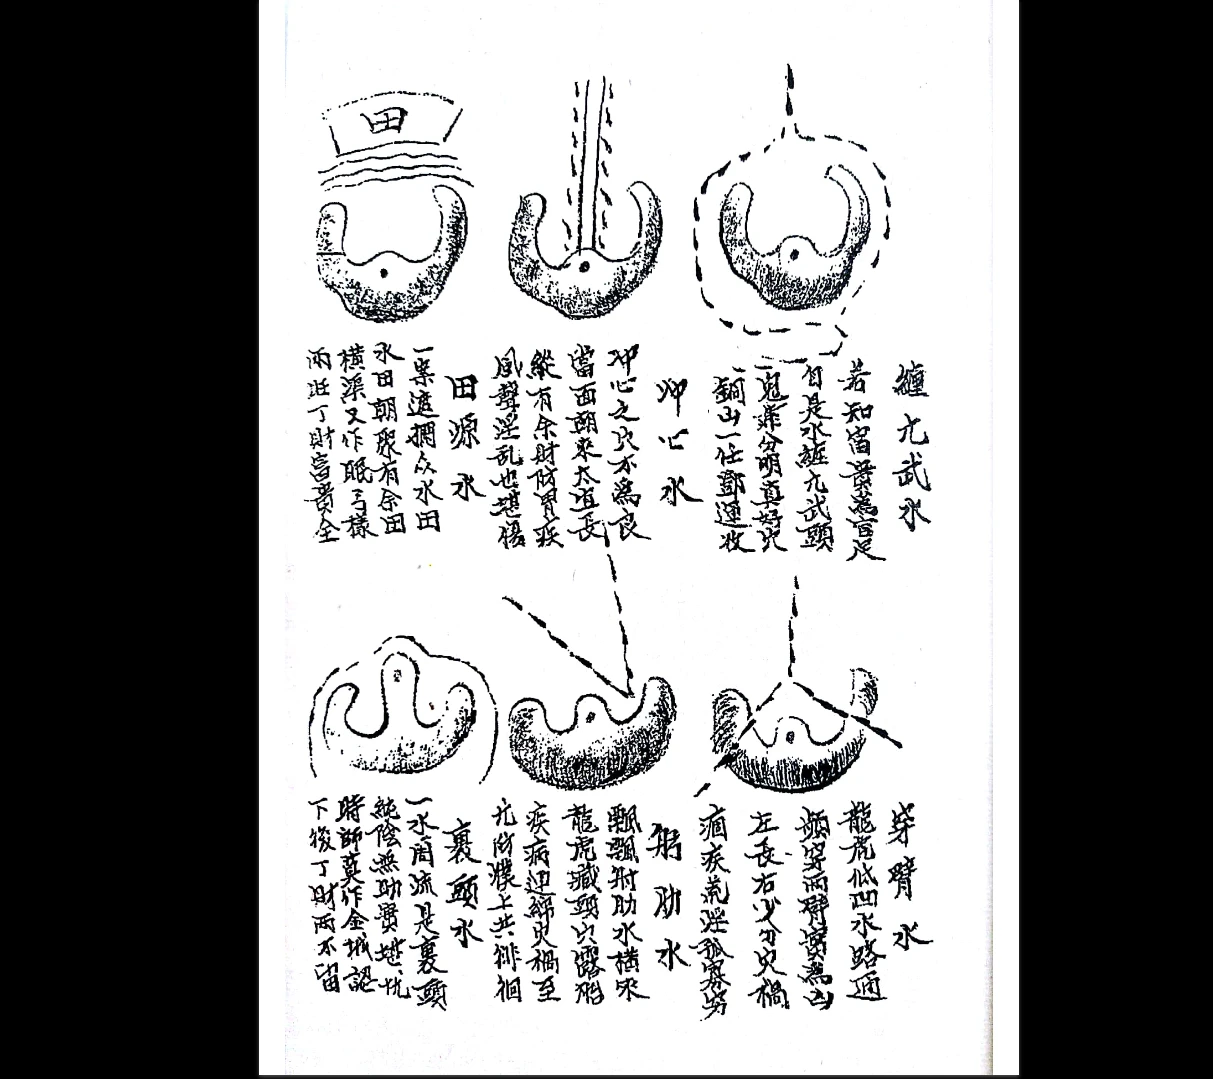 纏亢武水
若知富貴為官足
自是水纏亢武頭
鬼樂分明真好穴
銅山一任鄧通收
冲心水
冲心之穴不為良
當面朝來太直長
縱有余財防胃疾
風聲淫乱也堪傷
田
田源水
一案遮攔众水田
水田朝聚有余田
橫溪又作眠弓樣
兩班丁財富貴全
穿臂水
龍虎低凹水路通
頻穿兩臂實為凶
左長右少分灾禍
痼疾荒淫孤寡穷
射肋水
飄飄射肋水橫來
龍虎藏頭穴露胎
疾病連綿災禍至
亢防濮上共徘徊
裹頭水
一水周流是裹頭
純陰無助實堪忧
時師莫作金城認
下後丁財兩不留